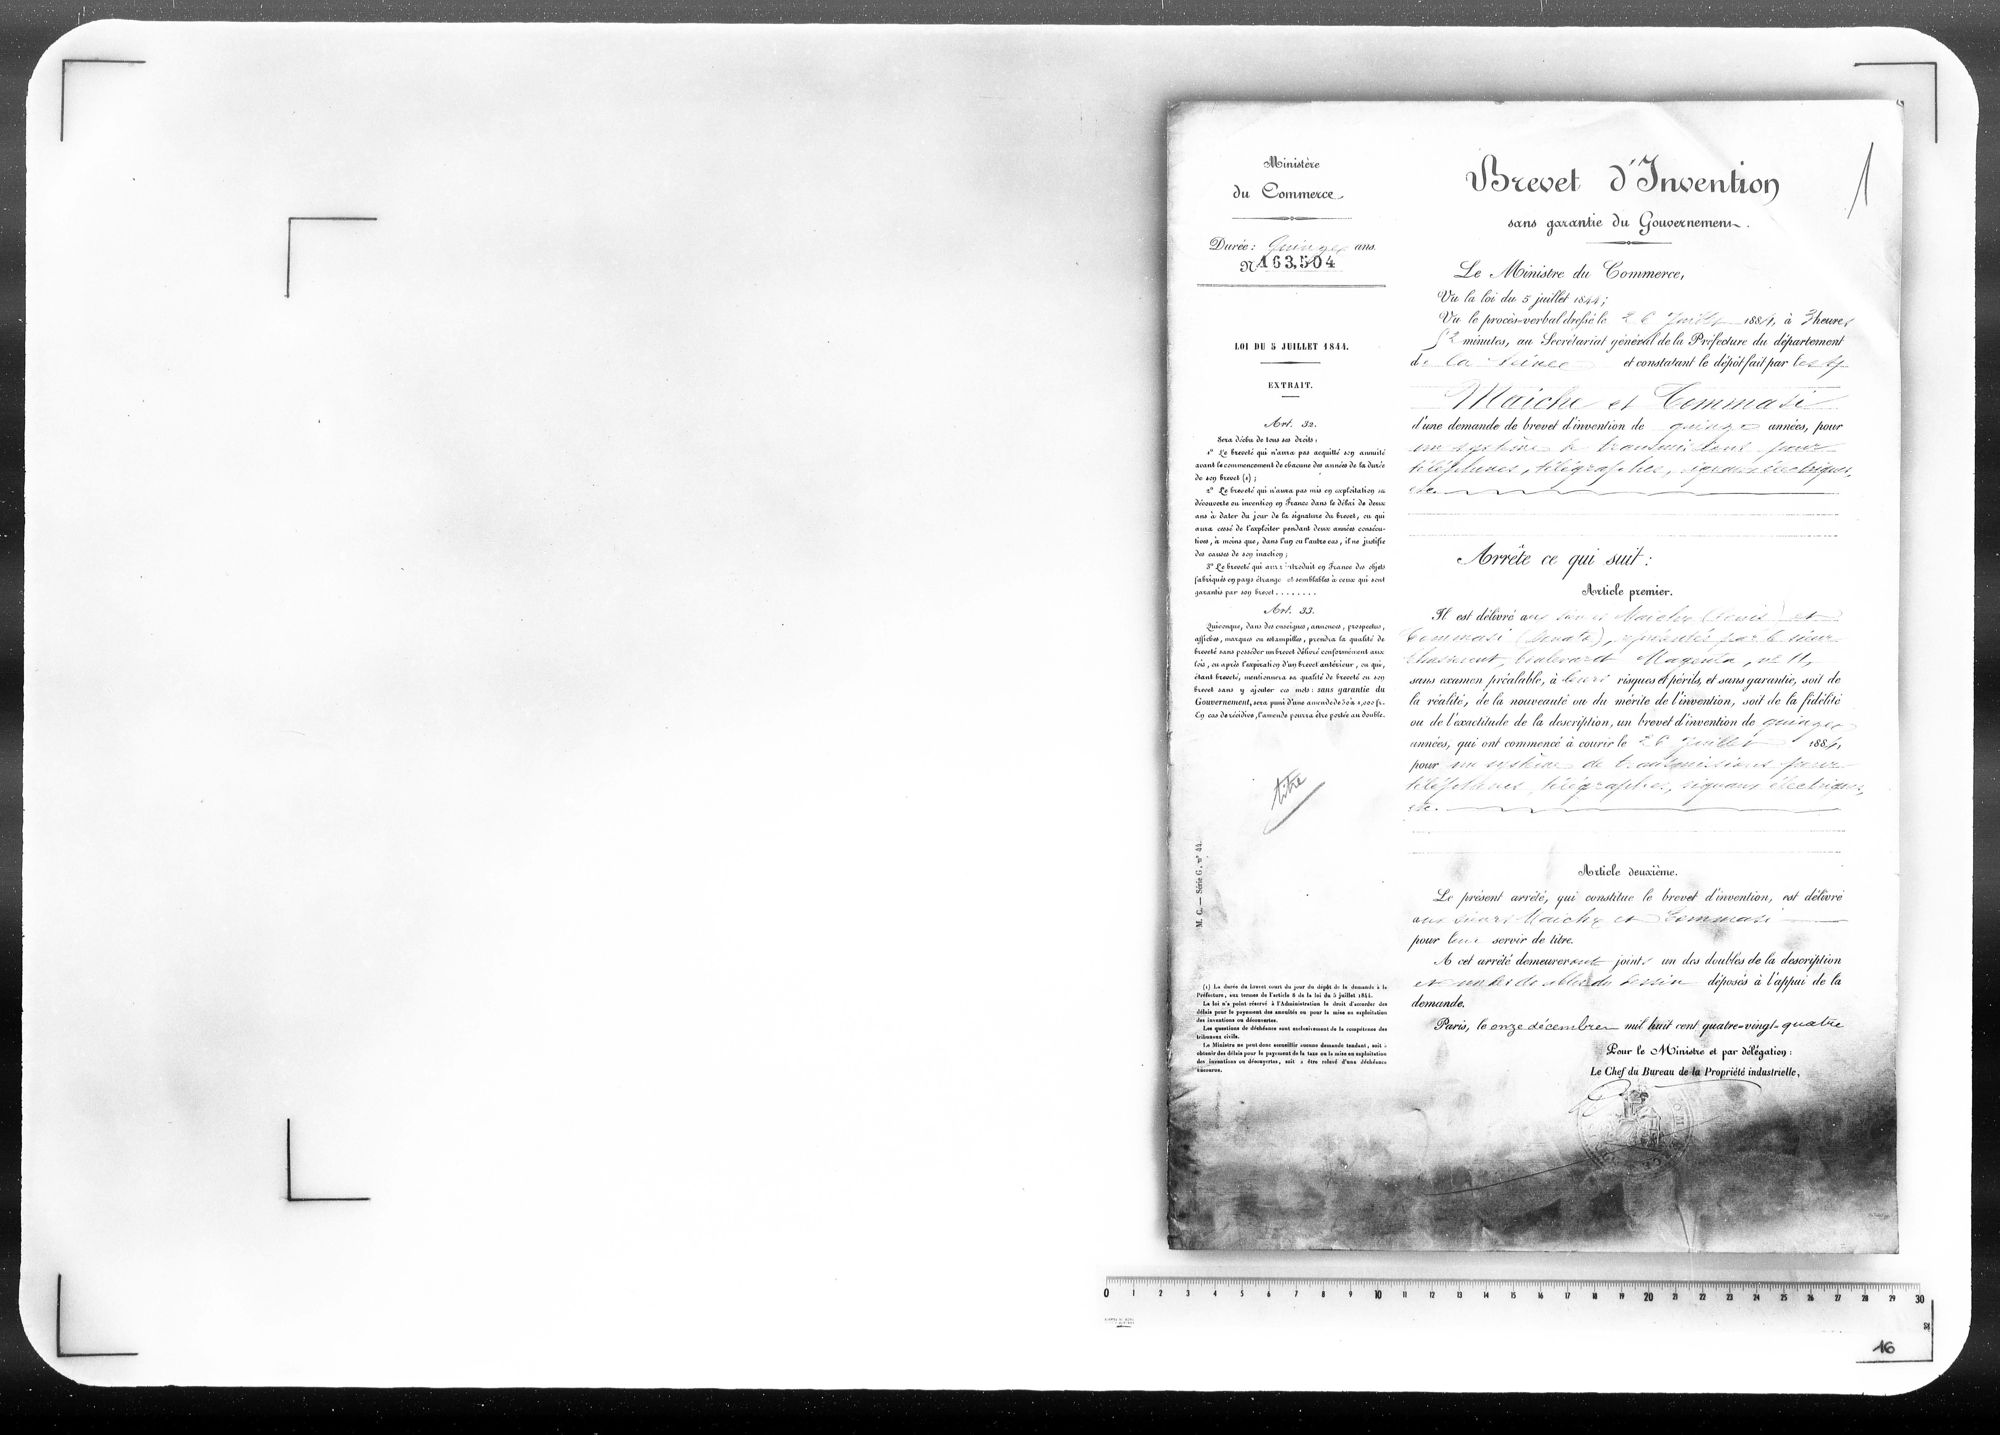 Ministère
du Commerce.
Durée : Quinze ans.
N° 163,504
LOI DU 5 JUILLET 1844.
EXTRAIT.
Art. 32.
Sera déchu de tous ses droits :
1° Le breveté qui n'aura pas acquitté son annuité
avant le commencement de chacune des années de la durée
de son brevet (1) ;
2° Le breveté qui n'aura pas mis en exploitation sa
découverte ou invention en France dans le délai de deux
ans à dater du jour de la signature du brevet, ou qui
aura cessé de l'exploiter pendant deux années consécu-
tives, à moins que, dans l'un ou l'autre cas, il ne justifie
des causes de son inaction ;
3° Le breveté qui aura introduit en France des objets
fabriqués en pays étranger et semblables à ceux qui sont
garantis par son brevet........
Art. 33.
Quiconque, dans des enseignes, annonces, prospectus,
affiches, marques ou estampilles, prendra la qualité de
breveté sans posséder un brevet délivré conformément aux
lois, ou après l'expiration d'un brevet antérieur, ou qui,
étant breveté, mentionnera sa qualité de breveté ou son
brevet sans y ajouter ces mots : sans garantie du
Gouvernement, sera puni d'une amende de 50 à 1,000 fr.
En cas de récidive, l'amende pourra être portée au double.
titre
M. C. — Série G, n° 44.
(1) La durée du brevet court du jour du dépôt de la demande à la
Préfecture, aux termes de l'article 8 de la loi du 5 juillet 1844.
La loi n'a point réservé à l'Administration le droit d'accorder des
délais pour le payement des annuités ou pour la mise en exploitation
des inventions ou découvertes.
Les questions de déchéance sont exclusivement de la compétence des
tribunaux civils.
Le Ministre ne peut donc accueillir aucune demande tendant, soit à
obtenir des délais pour le payement de la taxe ou la mise en exploitation
des inventions ou découvertes, soit à être relevé d'une déchéance
encourue.
Brevet d'Invention
1
sans garantie du Gouvernement.
Le Ministre du Commerce,
Vu la loi du 5 juillet 1844 ;
Vu le procès-verbal dressé le 26 Juillet 1884, à 3 heures
52 minutes, au Secrétariat général de la Préfecture du département
de la Seine et constatant le dépôt fait par les Srs
Maiche et Tommasi
d'une demande de brevet d'invention de quinze années, pour
un système de transmissions pour
téléphones, télégraphes, signaux électriques,
etc.
Arrête ce qui suit :
Article premier.
Il est délivré aux sieurs Maiche (Louis) et
Tommasi (Donato), représentés par le sieur
Chassevent, boulevard Magenta, n° 11,
sans examen préalable, à leurs risques et périls, et sans garantie, soit de
la réalité, de la nouveauté ou du mérite de l'invention, soit de la fidélité
ou de l'exactitude de la description, un brevet d'invention de quinze
années, qui ont commencé à courir le 26 Juillet 1884,
pour un système de transmissions pour
téléphones, télégraphes, signaux électriques,
etc.
Article deuxième.
Le présent arrêté, qui constitue le brevet d'invention, est délivré
aux sieurs Maiche et Tommasi
pour leur servir de titre.
A cet arrêté demeureront joints un des doubles de la description
et un des doubles du dessin déposés à l'appui de la
demande.
Paris, le onze décembre mil huit cent quatre-vingt-quatre
Pour le Ministre et par délégation :
Le Chef du Bureau de la Propriété industrielle,
0 1 2 3 4 5 6 7 8 9 10 11 12 13 14 15 16 17 18 19 20 21 22 23 24 25 26 27 28 29 30
16